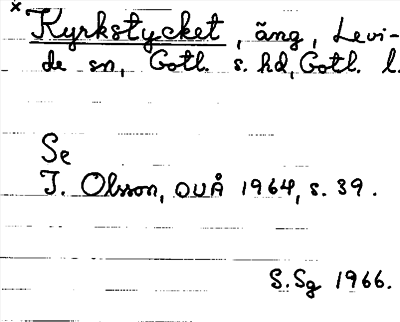 × Kyrkstycket, äng, Levi-
de sn, Gotl. s. hd, Gotl. l.
Se
I. Olsson, OUÅ 1964, s. 39.
S.Sg 1966.